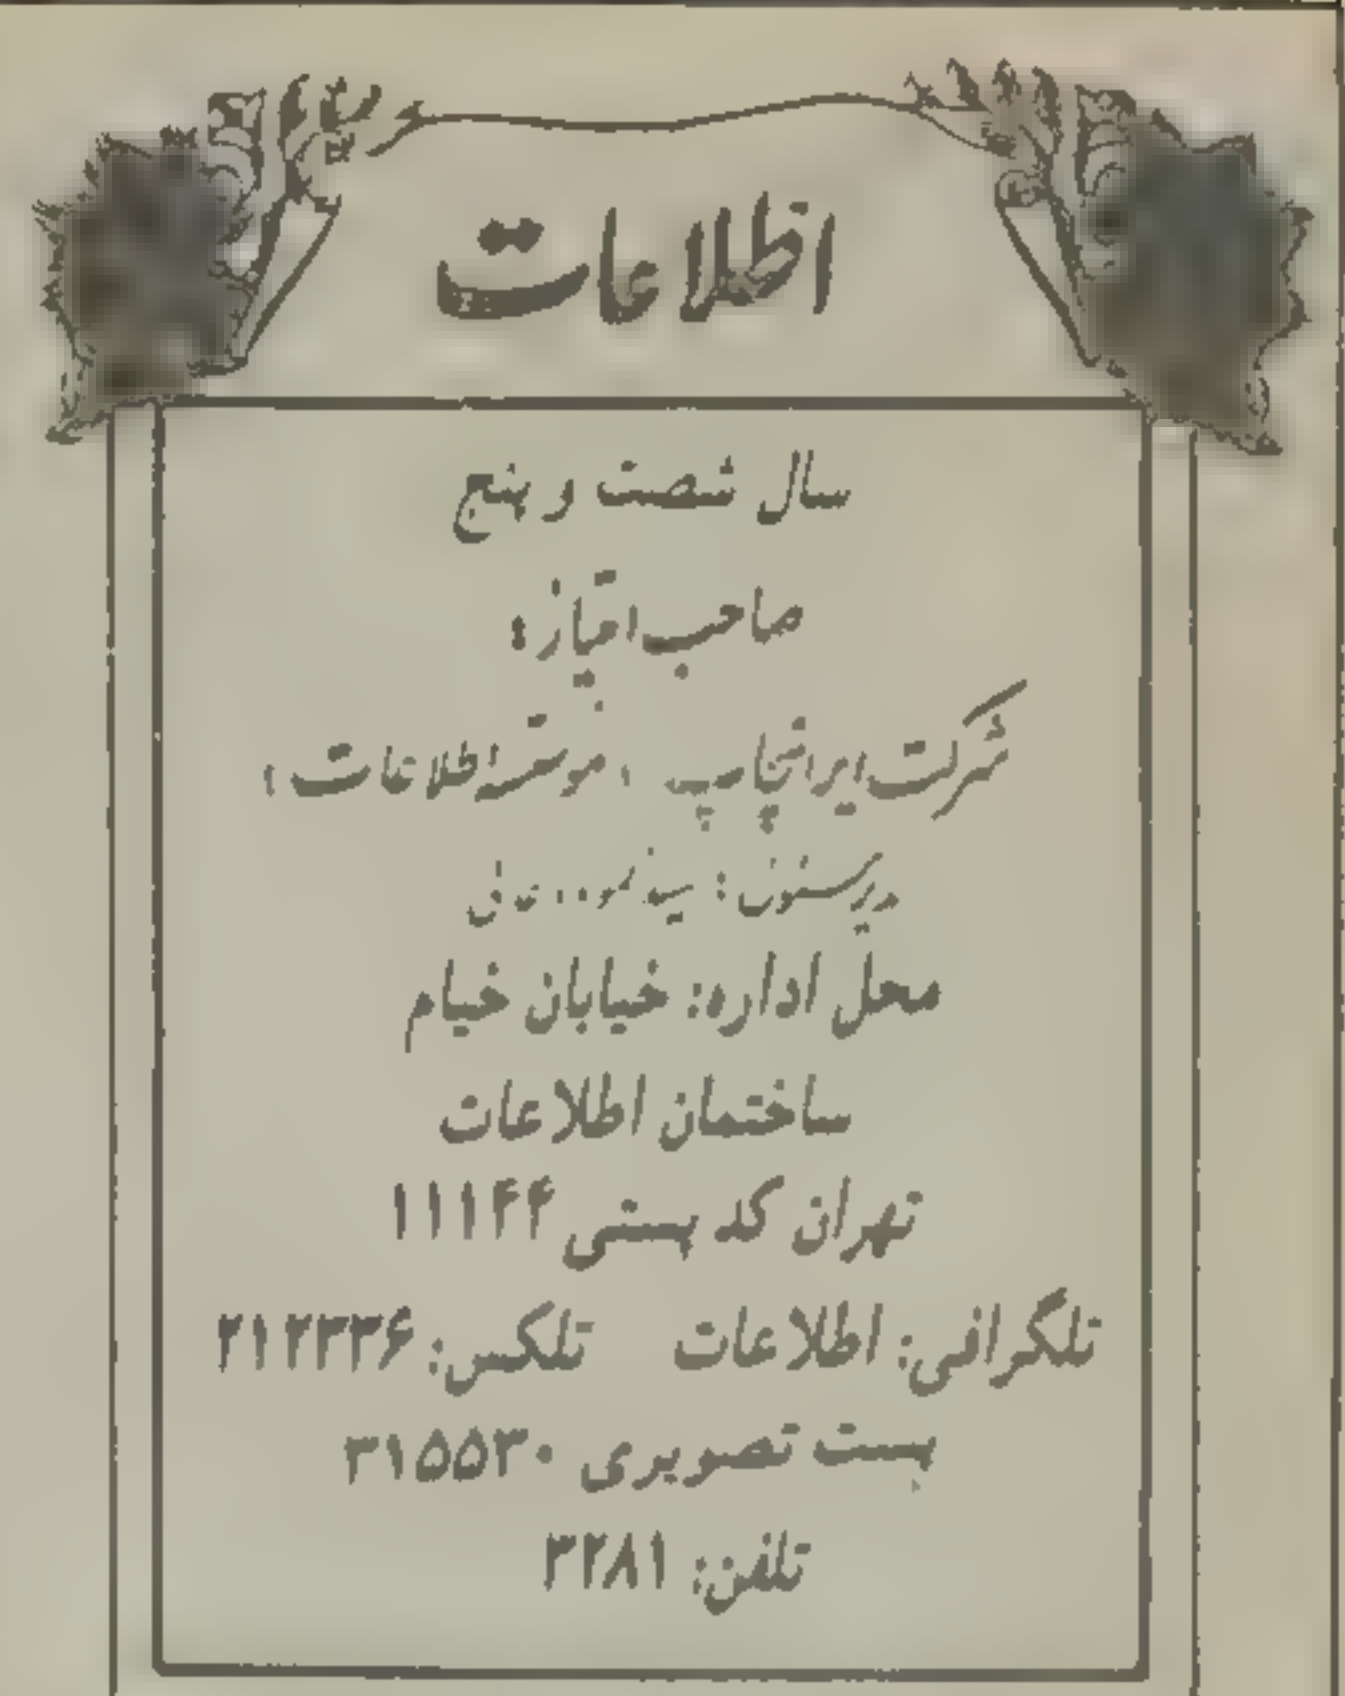 اطلاعات
سال شصت و پنج
صاحب امتیاز:
شرکت ایرانچاپ (موسسه اطلاعات)
مدیر مسئول: سید
محل اداره: خیابان خیام
ساختمان اطلاعات
تهران کد پستی ۱۱۱۴۴
تلگرافی: اطلاعات تلکس: ۲۱۲۳۳۶
پست تصویری ۳۱۵۵۳۰
تلفن: ۳۲۸۱